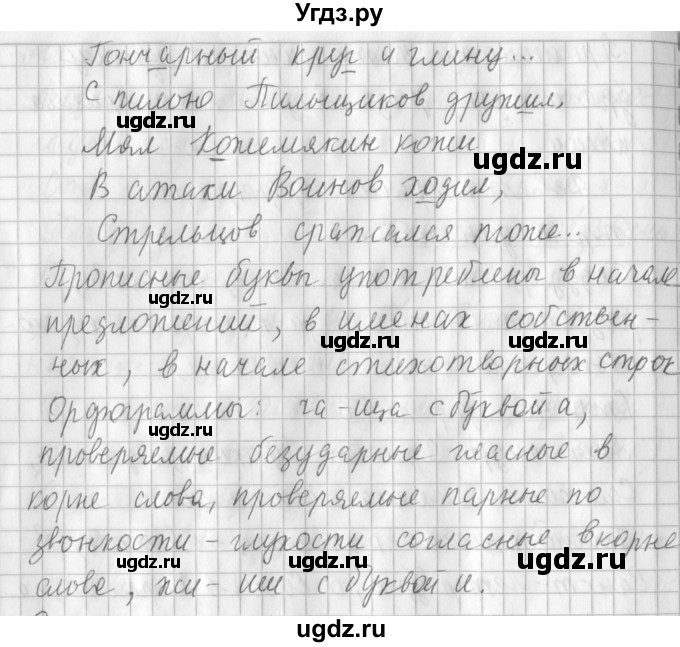 Угдз.ру
Гончарный круг и глину...
С пилою Пильщиков дружил,
ugdz.ru
ugdz.ru
Мял Кожемякин кожи
ugdz.ru
В атаки Воинов ходил,
Стрельцов сражался тоже..
Прописные буквы употреблены в начале
ugdz.ru
предложений, в именах собствен-
ugdz.ru
ugdz.ru
ных, в начале стихотворных строк
Орфограммы: ча-ща с буквой а,
ugdz.ru
проверяемые безударные гласные в
корне слова, проверяемые парные по
звонкости-глухости согласные в корне
ugdz.ru
ugdz.ru
слове, жи-ши с буквой и.
ugdz.ru